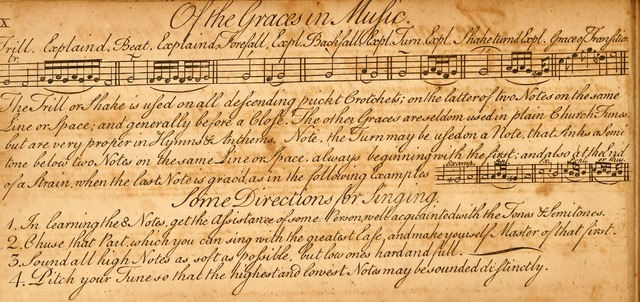 X
Of the Graces in Music.
Trill. Explaind. Beat. Explaind. Forefall. Expl. Backfall. Expl. Turn Expl. Shake turnd Expl. Grace of Transition
tr.
The Trill or Shake is used on all descending prickt Crotchets; on the latter of two Notes on the same
Line or Space; and generally before a Close. The other Graces are seldom used in plain Church Tunes,
but are very proper in Hymns & Anthems. Note, the Turn may be used on a Note, that sinks a Semi
tone below two Notes on the same Line or Space, always beginning with the first; and also at the End
of a Strain, when the last Note is grac'd, as in the following Examples
Exam. or thus.
Some Directions for Singing.
1. In learning the 8 Notes, get the Assistance of some Person, well acquainted with the Tones & Semitones.
2. Chuse that Part, which you can sing with the greatest Ease, and make yourself Master of that first.
3. Sound all high Notes as soft as possible, but low ones hard and full.
4. Pitch your Tune so that the highest and lowest Notes may be sounded distinctly.